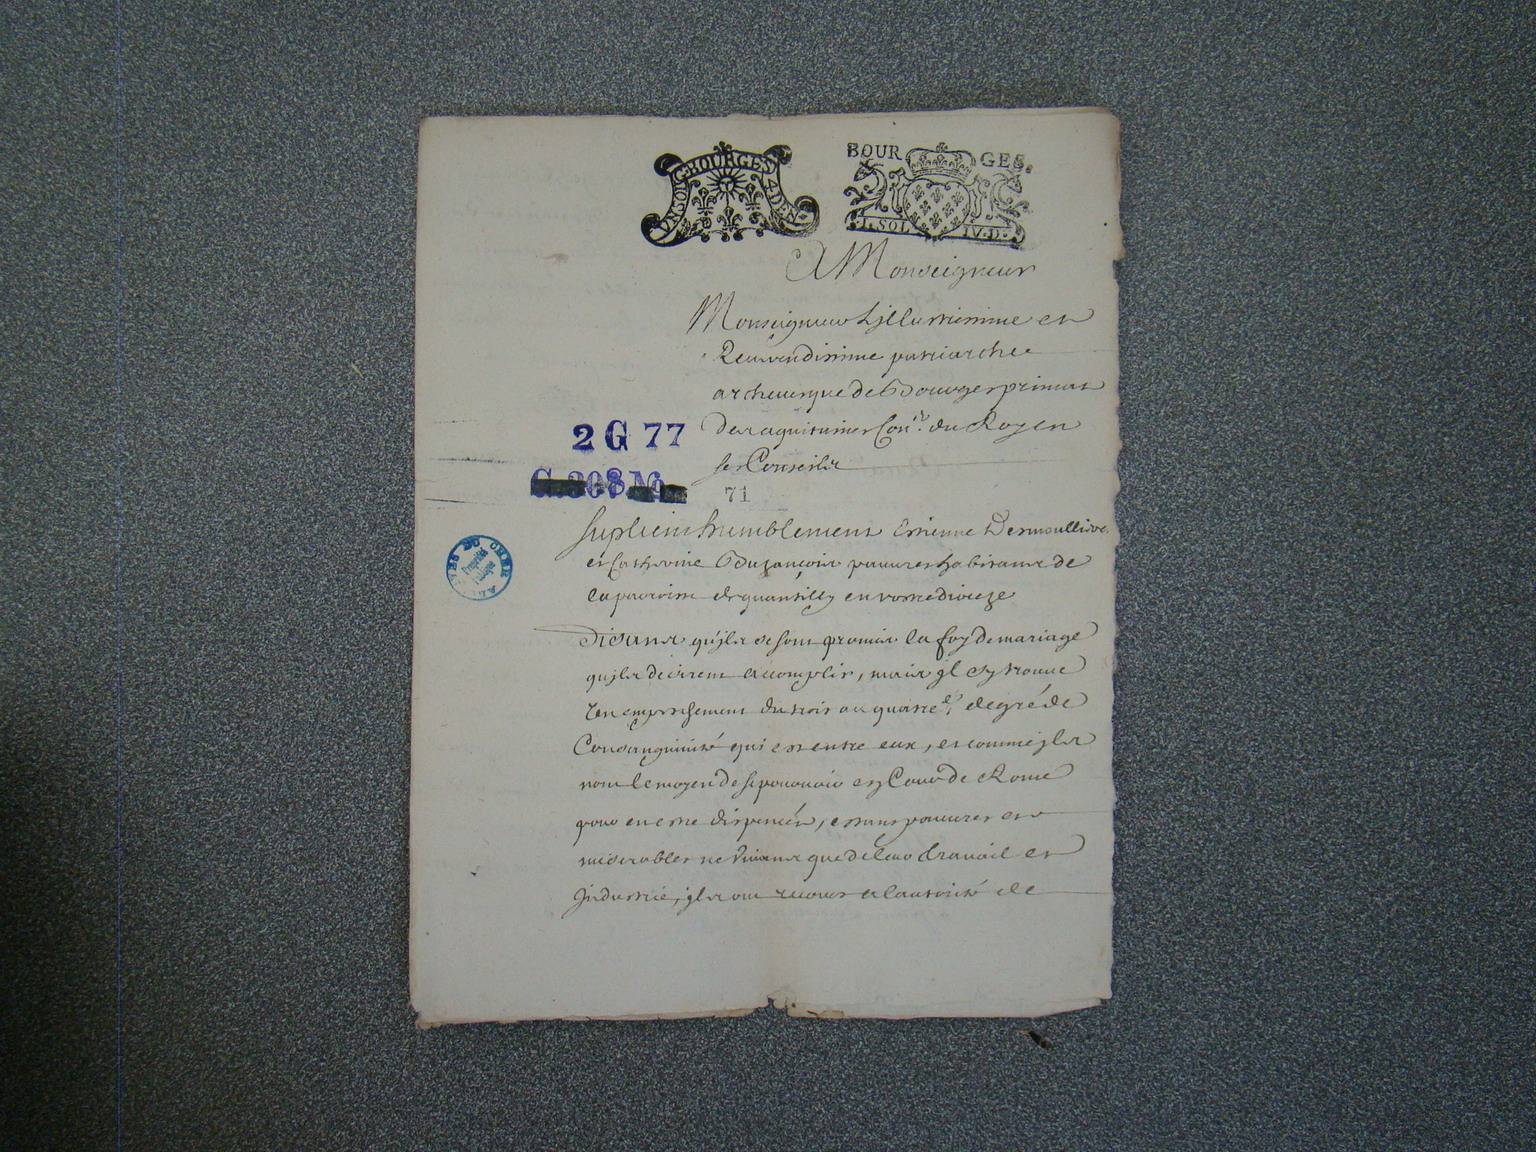 BOURGES
UN SOL 4 DEN.
BOUR GES.
I. SOL IV. D.
A Monseigneur
Monseigneur Lillustrissime et
Reuerendissime patriarche
archeuesque de Bourges primat
des aquitaines Con.er du Roy en
ses Conseils
2 G 77
71
suplient humblement Estienne Desmoulli
et Catherine Buzançois pauures habitans de
la paroisse de quantilly en vostre dioceze
Disans qu'jls se sont promis la foy de mariage
qu'jls desirent accomplir, mais jl s'y trouue
Un empeschement du trois au quatre.e degré de
Consanguinité qui est entre eux, et comme jls
n'ont le moyen de se pouruoir en Cour de Rome
pour en estre dispencés, estans pauures et
miserables ne viuans que de leur trauail et
Industrie, jls ont recours a lautorité de
ARCHIVES DU CHER
Propriété
Publique